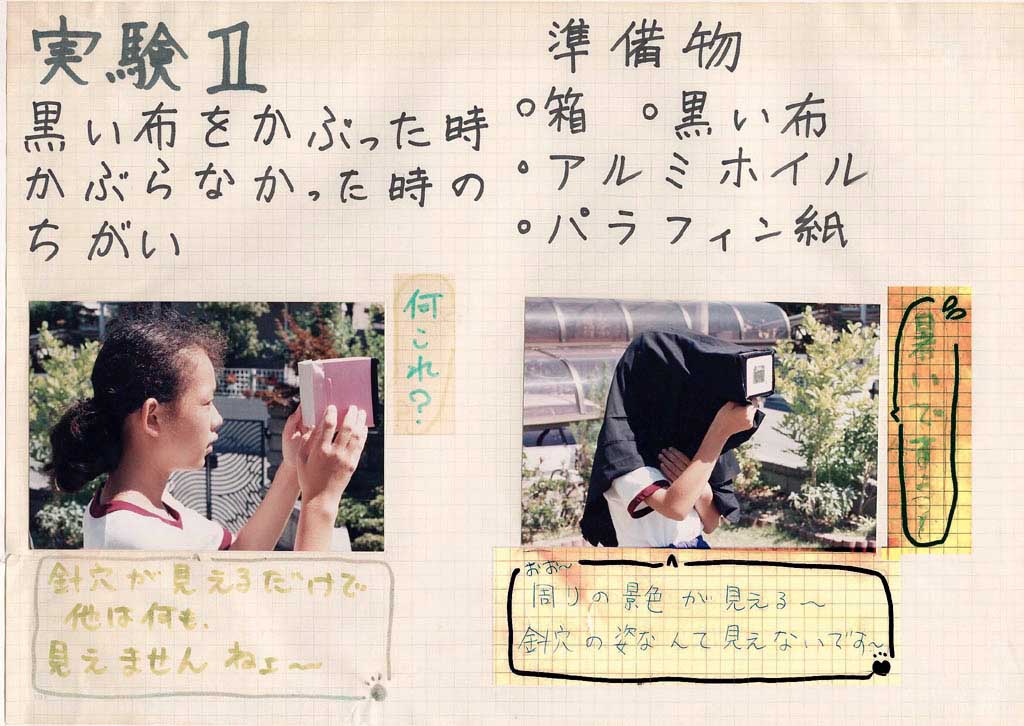 実験Ⅱ
黒い布をかぶった時
かぶらなかった時の
ちがい
準備物
○箱 ○黒い布
○アルミホイル
○パラフィン紙
何これ?
針穴が見えるだけで
他は何も、
見えませんねぇ〜
暑いです
おお〜
周りの景色が見える〜
針穴の姿なんて見えないです〜